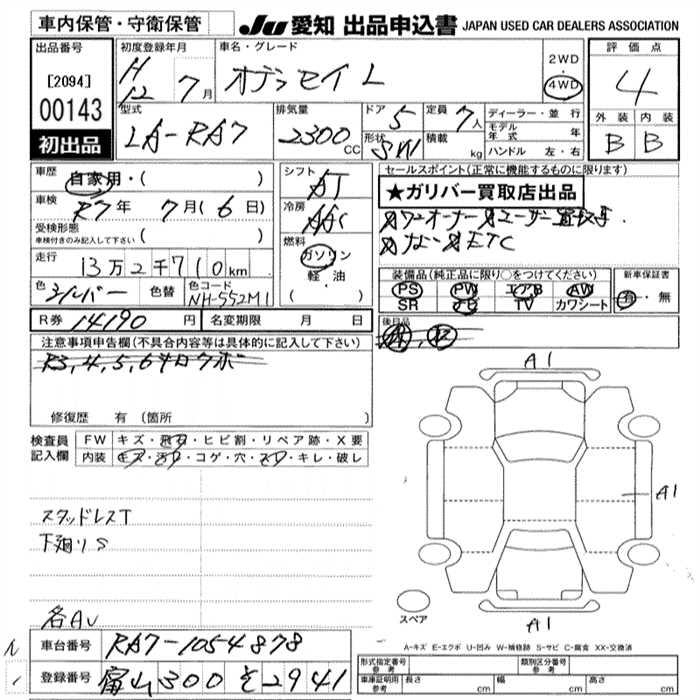 車内保管・守衛保管
JU 愛知 出品申込書 JAPAN USED CAR DEALERS ASSOCIATION
出品番号
[2094]
00143
初出品
初度登録年月
H12 7月
車名・グレード
オデッセイ L
2WD
4WD
評価点
4
外装 内装
B B
型式
LA-RA7
排気量
2300cc
ドア
5
形状
SW
定員
7人
積載
kg
ディーラー・並行
モデル年式 年
ハンドル 左・右
車歴
自家用・( )
車検
R7年 7月(6日)
受検形態
車検付きのみ記入して下さい ( )
走行
13万2千710km
色
シルバー
色替
色コード
NH-552M1
シフト
AT
冷房
AAC
燃料
ガソリン
軽・油
( ・ )
セールスポイント(正常に機能するものに限ります)
★ガリバー買取店出品
ワンオーナー ユーザー買取車
ナビ ETC
装備品(純正品に限り○をつけてください)
PS PW エアB AW
SR TV カワシート
新車保証書
有・無
後日品
R券 14190円
名変期限 月 日
注意事項申告欄(不具合内容等は具体的に記入して下さい)
R3,4,5,6
修復歴 有 (箇所 )
検査員記入欄
FW キズ・飛石・ヒビ割・リペア跡・X要
内装 キズ・汚れ・コゲ・穴・スレ・キレ・破レ
スタッドレスT
下廻りS
各AU
A1
A1
A1
スペア
A-キズ E-エクボ U-凹み W-補修跡 S-サビ C-腐食 XX-交換済
車台番号 RA7-1054878
登録番号 富山 300 そ 2941
形式指定番号 参考
類別区分番号 参考
車庫証明用 参考 長さ cm 幅 cm 高さ cm